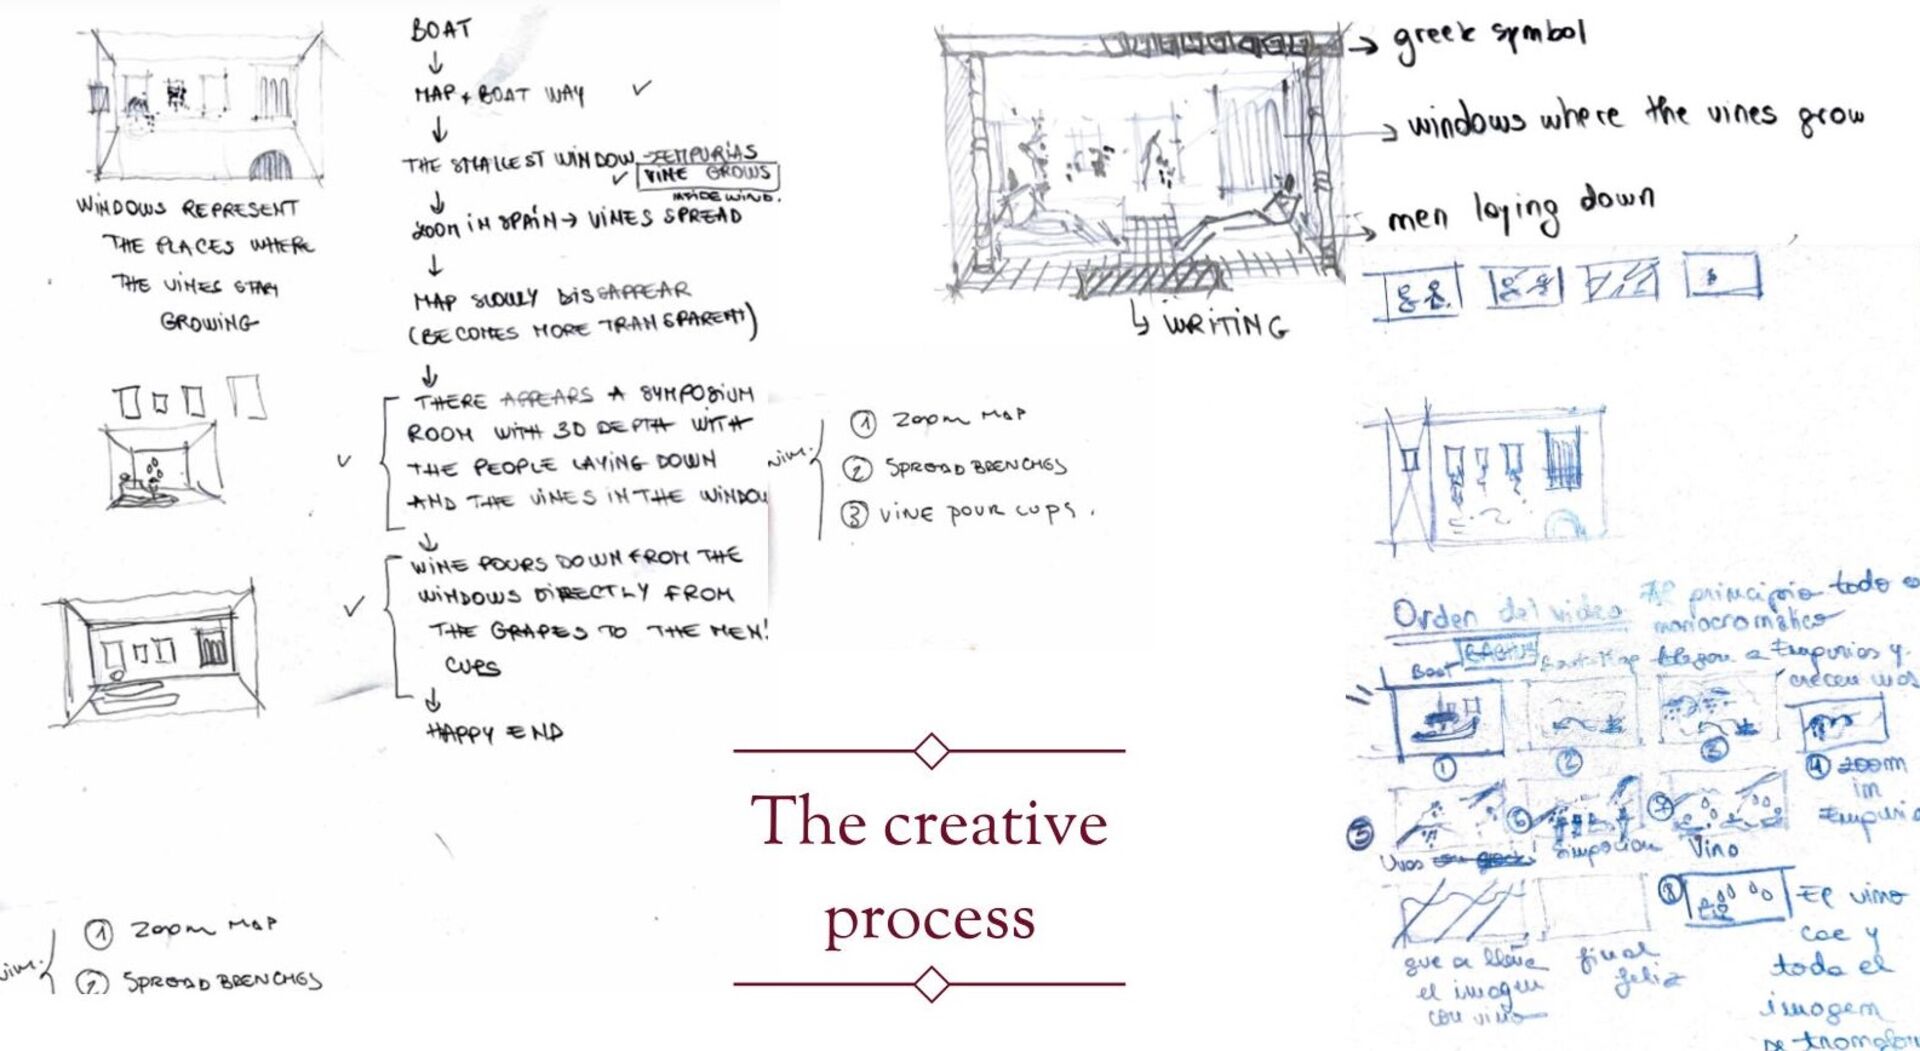 BOAT
MAP + BOAT WAY
THE SMALLEST WINDOW
VINE GROWS
INSIDE WIND.
ZOOM IN SPAIN → VINES SPREAD
MAP SLOWLY DISSAPPEAR
(BECOMES MORE TRANSPARENT)
THERE APPEARS A SYMPOSIUM
ROOM WITH 3D DEPTH WITH
THE PEOPLE LAYING DOWN
AND THE VINES IN THE WINDOW
WINE POURS DOWN FROM THE
WINDOWS DIRECTLY FROM
THE GRAPES TO THE MEN!
CUPS
HAPPY END
WINDOWS REPRESENT
THE PLACES WHERE
THE VINES START
GROWING
greek symbol
windows where the vines grow
men laying down
WRITING
① ZOOM MAP
② SPREAD BRENCHES
③ VINE POUR CUPS.
The creative
process
① ZOOM MAP
② SPREAD BRENCHES
Orden del video
Al principio todo
monocromático
Boat
llegan a Empurias y
crecen uvas
①
②
③
④ zoom
in
⑤
⑥
⑦
Uvas
Simposium
Vino
⑧
El vino
cae y
toda el
imagen
que se llena
el imagen
con vino
final
feliz